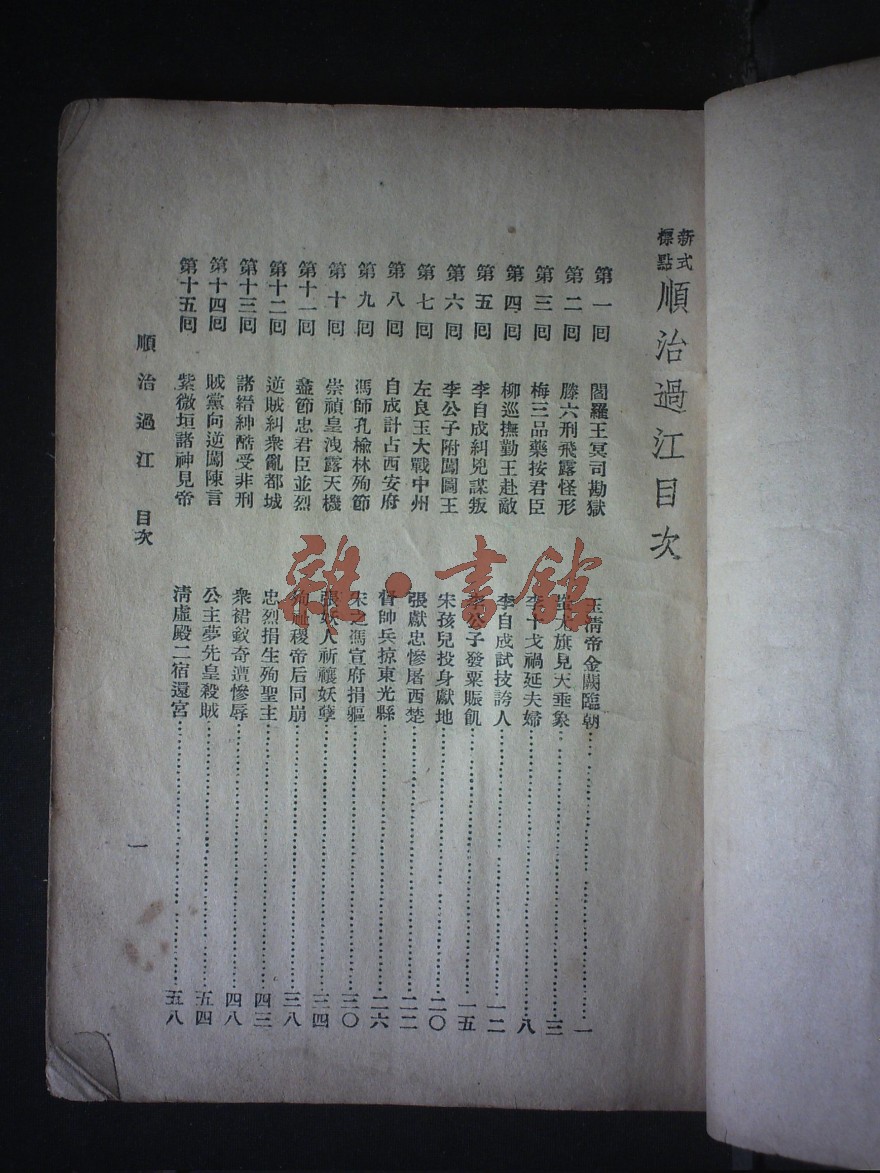 新式標點 順治過江目次
第一回 閻羅王冥司勘獄 玉清帝金闕臨朝 一
第二回 滕六刑飛露怪形 旗見天垂象 三
第三回 梅三品藥按君臣 李十戈禍延夫婦 八
第四回 柳巡撫勤王赴敵 李自成試技誇人 一二
第五回 李自成糾兇謀叛 李公子發粟賑飢 一五
第六回 李公子附闖圖王 宋孩兒投身獻地 二〇
第七回 左良玉大戰中州 張獻忠慘屠西楚 二二
第八回 自成計占西安府 督帥兵掠東光縣 二六
第九回 馮師孔榆林殉節 宋之馮宣府捐軀 三〇
第十回 崇禎皇洩露天機 張妖人祈禳妖孽 三四
第十一回 盡節忠君臣並烈 殉社稷帝后同崩 三八
第十二回 逆賊糾衆亂都城 忠烈捐生殉聖主 四三
第十三回 諸縉紳酷受非刑 衆裙釵奇遭慘辱 四八
第十四回 賊黨向逆闖陳言 公主夢先皇殺賊 五四
第十五回 紫微垣諸神見帝 清虛殿二宿還宮 五八
順治過江 目次 一
雜·書館